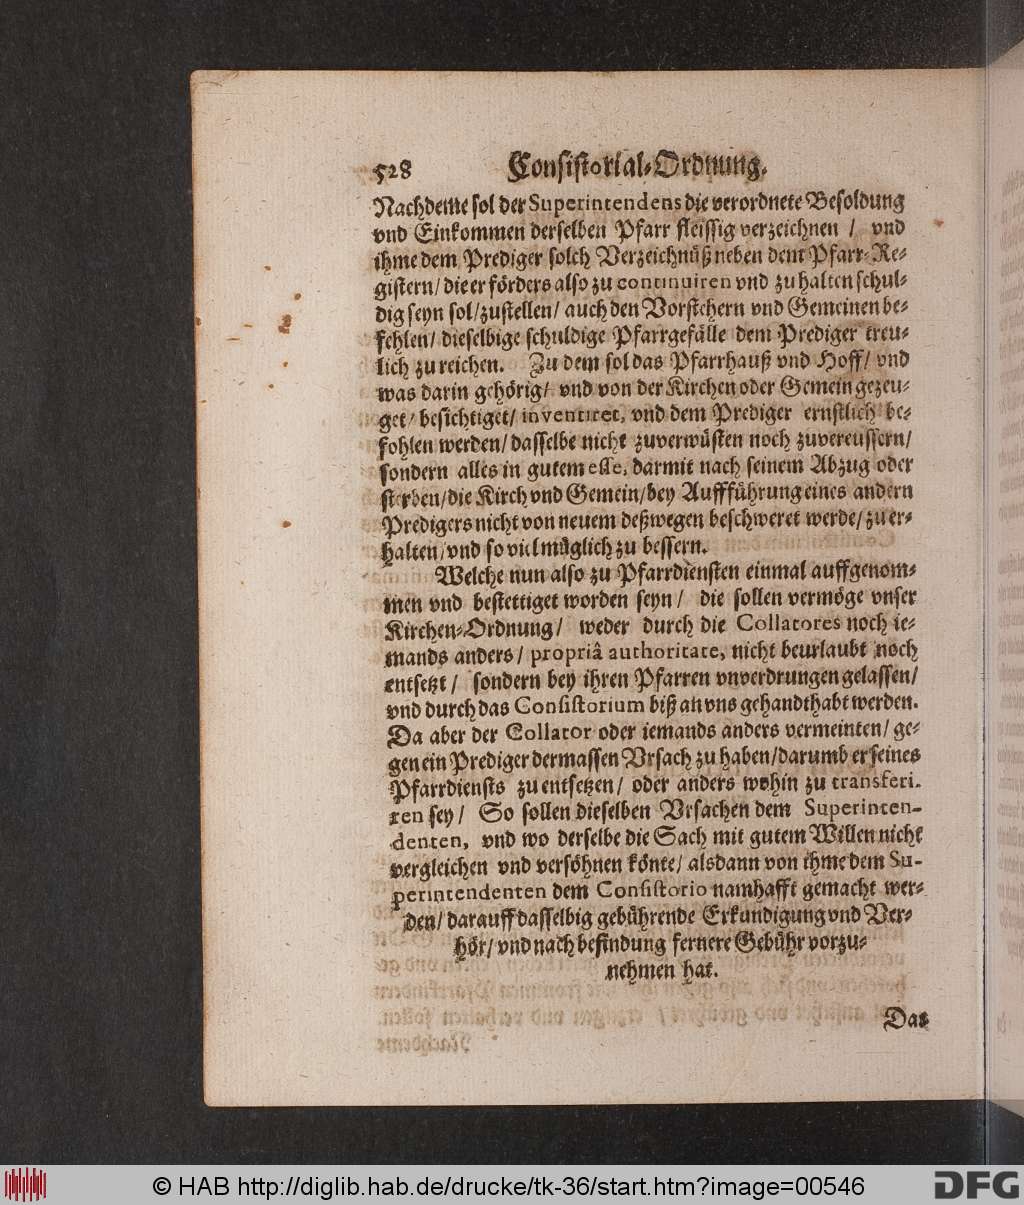 528 Consistorial-Ordnung.
Nachdeme sol der Superintendens die verordnete Besoldung
vnd Einkommen derselben Pfarr fleissig verzeichnen / vnd
ihme dem Prediger solch Verzeichnüß neben dem Pfarr-Re-
gistern/ die er förders also zu continuiren vnd zu halten schul-
dig seyn sol/ zustellen/ auch den Vorstehern vnd Gemeinen be-
fehlen/ dieselbige schuldige Pfarrgefälle dem Prediger treu-
lich zu reichen. Zu dem sol das Pfarrhauß vnd Hoff/ vnd
was darin gehörig/ vnd von der Kirchen oder Gemein gezeu-
get/ besichtiget/ inventiret, vnd dem Prediger ernstlich be-
fohlen werden/ dasselbe nicht zuverwüsten noch zuvereussern/
sondern alles in gutem esse, darmit nach seinem Abzug oder
sterben/ die Kirch vnd Gemein/ bey Auffführung eines andern
Predigers nicht von neuem deßwegen beschweret werde/ zu er-
halten/ vnd so viel müglich zu bessern.
Welche nun also zu Pfarrdiensten einmal auffgenom-
men vnd bestettiget worden seyn / die sollen vermöge vnser
Kirchen-Ordnung / weder durch die Collatores noch ie-
mands anders / propriâ authoritate, nicht beurlaubt noch
entsetzt / sondern bey ihren Pfarren vnverdrungen gelassen/
vnd durch das Consistorium biß an vns gehandthabt werden.
Da aber der Collator oder iemands anders vermeinten/ ge-
gen ein Prediger dermassen Vrsach zu haben/ darumb er seines
Pfarrdiensts zu entsetzen / oder anders wohin zu transferi-
ren sey / So sollen dieselben Vrsachen dem Superinten-
denten, vnd wo derselbe die Sach mit gutem Willen nicht
vergleichen vnd versöhnen könte/ alsdann von ihme dem Su-
perintendenten dem Consistorio namhafft gemacht wer-
den/ darauff dasselbig gebührende Erkundigung vnd Ver-
hör/ vnd nach befindung fernere Gebühr vorzu-
nehmen hat.
Das
© HAB http://diglib.hab.de/drucke/tk-36/start.htm?image=00546
DFG